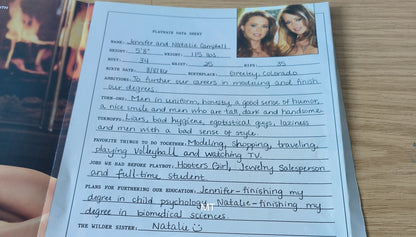 PLAYMATE DATA SHEET
NAME: Jennifer and Natalie Campbell
HEIGHT: 5'8" WEIGHT: 115 lbs.
BUST: 34 WAIST: 25 HIPS: 35
BIRTH DATE: BIRTHPLACE: Greeley, Colorado
AMBITIONS: To further our careers in modeling and finish
our degrees.
TURN-ONS: Men in uniform, honesty, a good sense of humor,
a nice smile and men who are tall, dark and handsome.
TURNOFFS: Liars, bad hygiene, egotistical guys, laziness
and men with a bad sense of style.
FAVORITE THINGS TO DO TOGETHER: Modeling, shopping, traveling,
playing volleyball and watching TV.
JOBS WE HAD BEFORE PLAYBOY: Hooters Girl, Jewelry Salesperson
and full-time student.
PLANS FOR FURTHERING OUR EDUCATION: Jennifer-finishing my
degree in child psychology. Natalie-finishing my
degree in biomedical sciences.
MT
THE WILDER SISTER: Natalie ☺